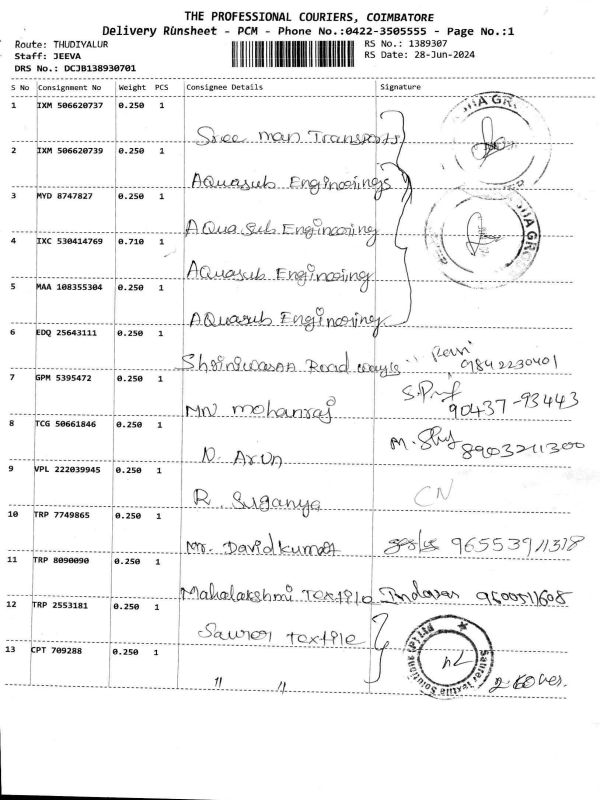 THE PROFESSIONAL COURIERS, COIMBATORE
Delivery Runsheet - PCM - Phone No.:0422-3505555 - Page No.:1
Route: THUDIYALUR RS No.: 1389307
Staff: JEEVA RS Date: 28-Jun-2024
DRS No.: DCJB138930701
S No Consignment No Weight PCS Consignee Details Signature
1 IXM 506620737 0.250 1
Sree man Transports
2 IXM 506620739 0.250 1
Aquasub Engineerings
3 MYD 8747827 0.250 1
Aqua Sub Engineering
4 IXC 530414769 0.710 1
Aquasub Engineering
5 MAA 108355304 0.250 1
Aquasub Engineering
6 EDQ 25643111 0.250 1
Shriniwasan Road ways Ravi 9842230401
7 GPM 5395472 0.250 1
Mr mohanraj 90437-93443
8 TCG 50661846 0.250 1
N. Arun 8903211300
9 VPL 222039945 0.250 1
R. Suganya CN
10 TRP 7749865 0.250 1
Mr. Davidkumar
11 TRP 8090090 0.250 1
Mahalakshmi Textile
12 TRP 2553181 0.250 1
Saurer textile
13 CPT 709288 0.250 1
" "
Saurer Textile Solutions (P) Ltd